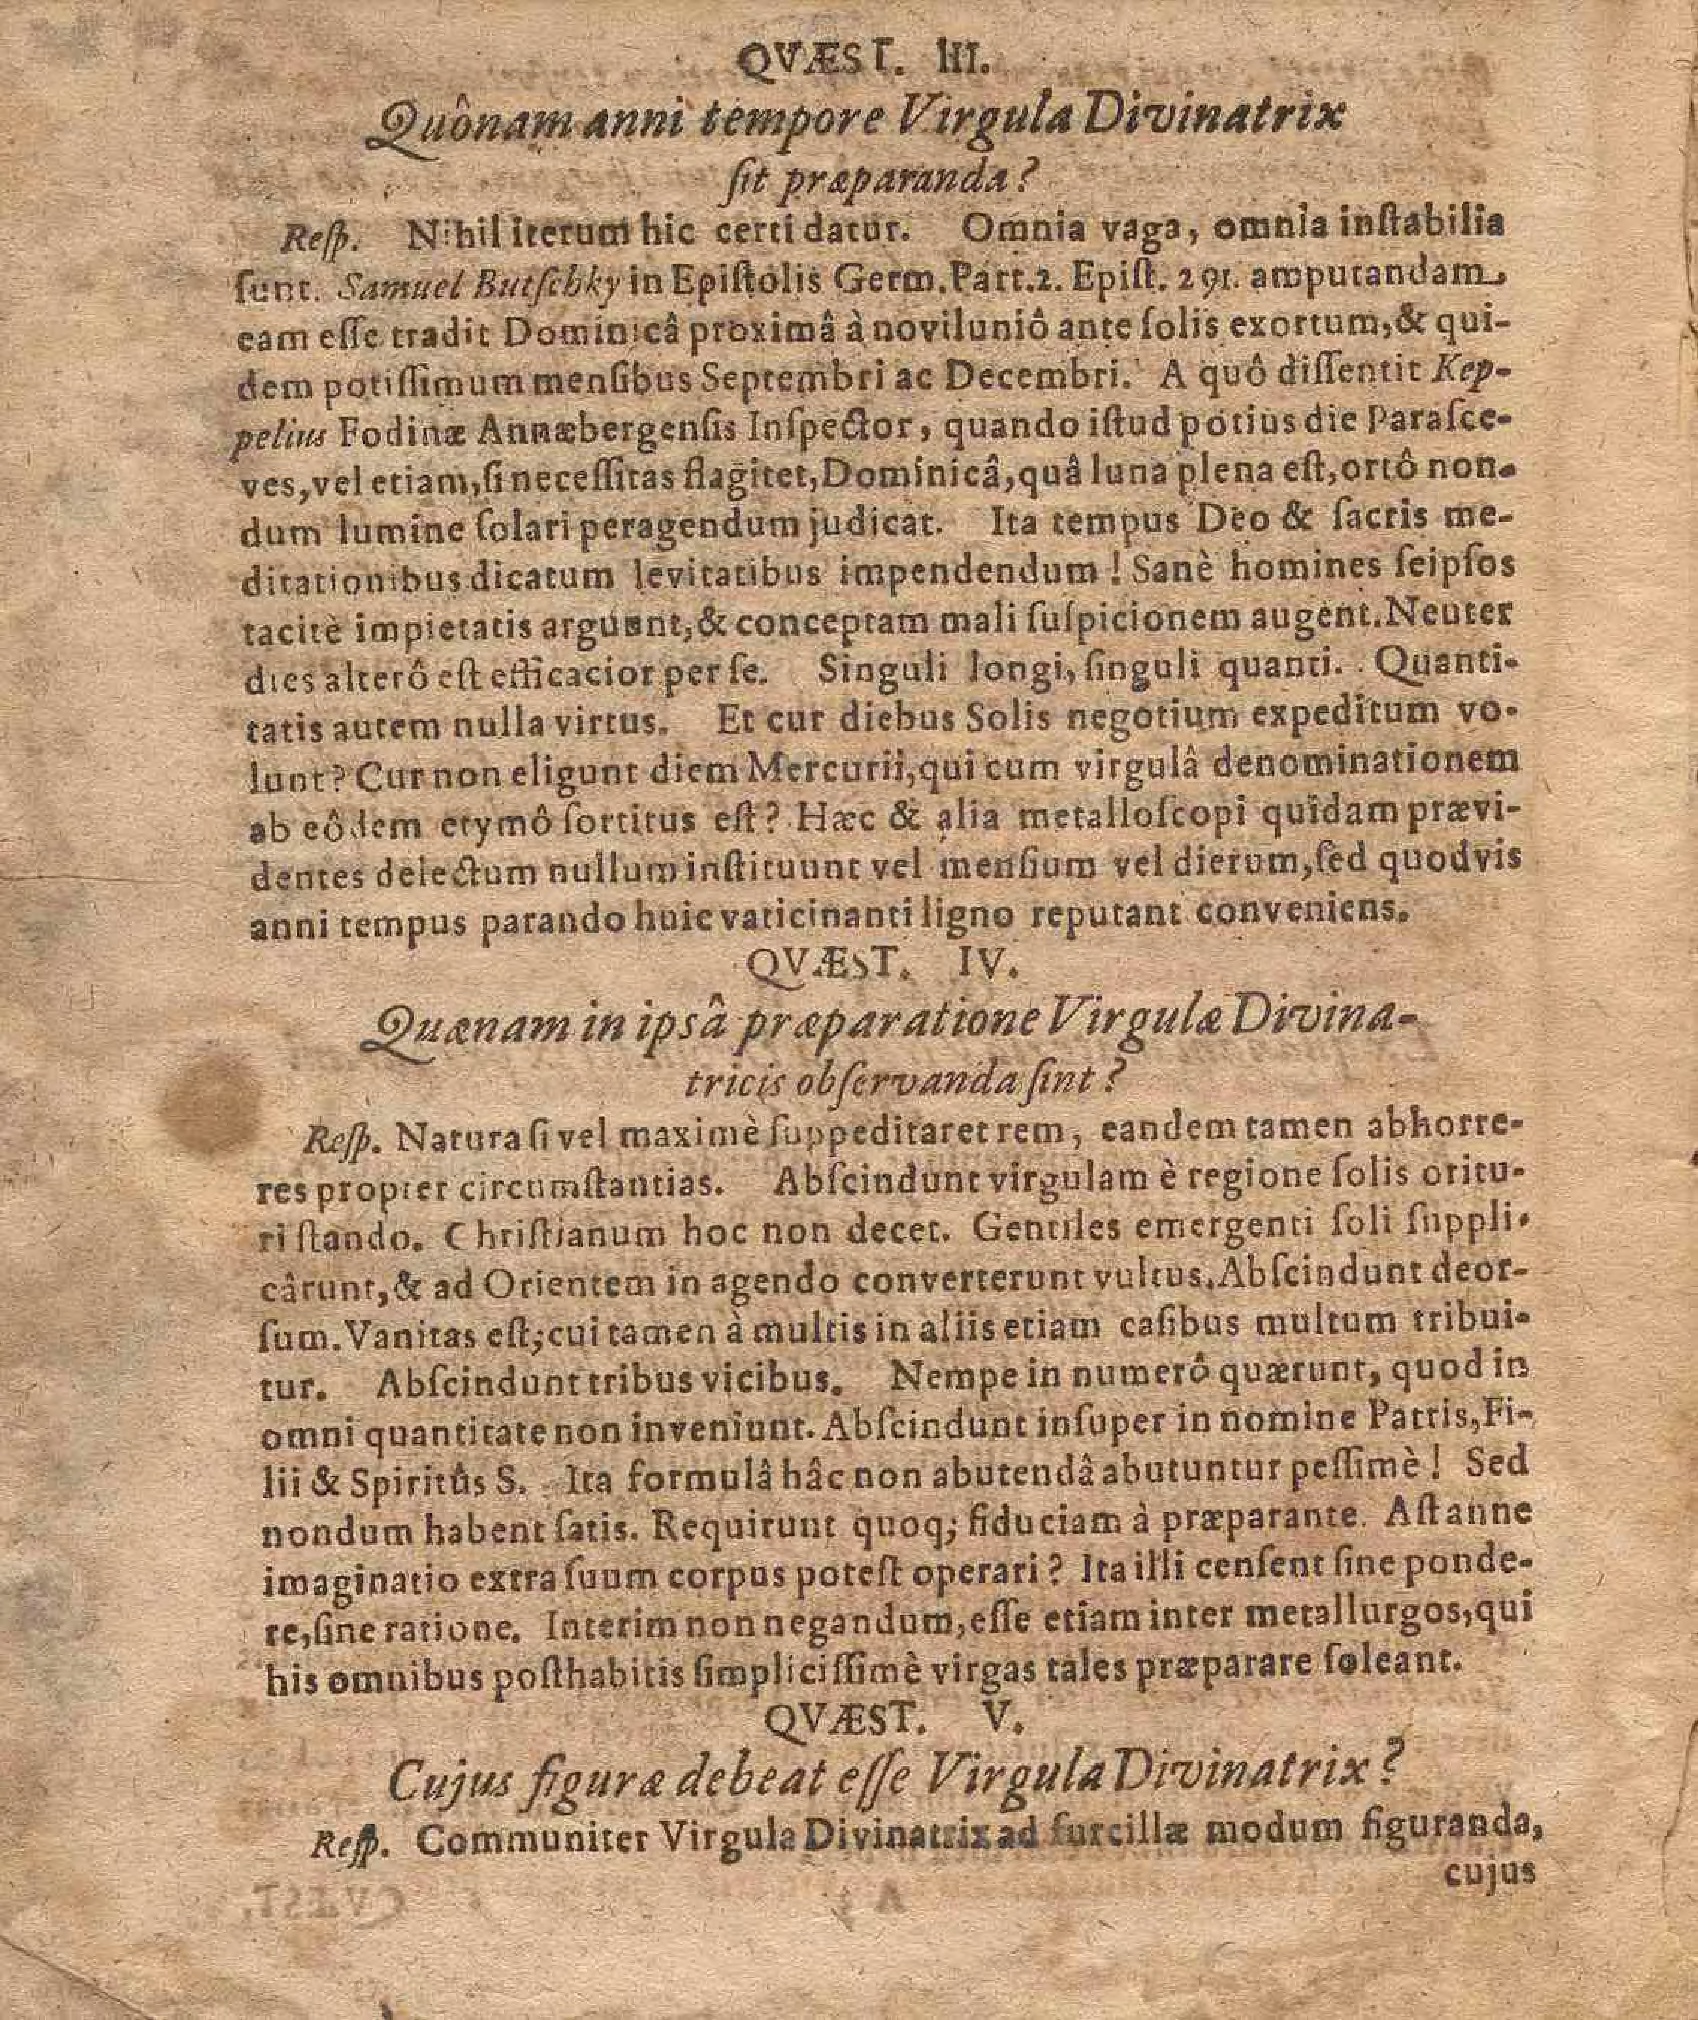 QVÆST. III.
Quônam anni tempore Virgula Divinatrix
ſit præparanda?
Reſp. Nihil iterum hic certi datur. Omnia vaga, omnia inſtabilia
ſunt. Samuel Butſchky in Epiſtolis Germ. Part. 2. Epiſt. 291. amputandam
eam eſſe tradit Dominicâ proximâ à noviluniô ante ſolis exortum, & qui-
dem potiſſimum menſibus Septembri ac Decembri. A quô diſſentit Kep-
pelius Fodinæ Annæbergenſis Inſpector, quando iſtud potius die Paraſce-
ves, vel etiam, ſi neceſſitas flagitet, Dominicâ, quâ luna plena eſt, ortô non-
dum lumine ſolari peragendum judicat. Ita tempus Deo & ſacris me-
ditationibus dicatum levitatibus impendendum! Sanè homines ſeipſos
tacitè impietatis arguunt, & conceptam mali ſuſpicionem augent. Neuter
dies alterô eſt efficacior per ſe. Singuli longi, ſinguli quanti. Quanti-
tatis autem nulla virtus. Et cur diebus Solis negotium expeditum vo-
lunt? Cur non eligunt diem Mercurii, qui cum virgulâ denominationem
ab eôdem etymô ſortitus eſt? Hæc & alia metalloſcopi quidam prævi-
dentes delectum nullum inſtituunt vel menſium vel dierum, ſed quodvis
anni tempus parando huic vaticinanti ligno reputant conveniens.
QVÆST. IV.
Quænam in ipsâ præparatione Virgulæ Divina-
tricis obſervanda ſint?
Reſp. Natura ſi vel maximè ſuppeditaret rem, eandem tamen abhorre-
res propter circumſtantias. Abſcindunt virgulam è regione ſolis oritu-
ri ſtando. Chriſtianum hoc non decet. Gentiles emergenti ſoli ſuppli-
cârunt, & ad Orientem in agendo converterunt vultus. Abſcindunt deor-
ſum. Vanitas eſt; cui tamen à multis in aliis etiam caſibus multum tribui-
tur. Abſcindunt tribus vicibus. Nempe in numerô quærunt, quod in
omni quantitate non inveniunt. Abſcindunt inſuper in nomine Patris, Fi-
lii & Spiritûs S. Ita formulâ hâc non abutendâ abutuntur peſſimè! Sed
nondum habent ſatis. Requirunt quoq; fiduciam à præparante. Aſt anne
imaginatio extra ſuum corpus poteſt operari? Ita illi cenſent ſine ponde-
re, ſine ratione. Interim non negandum, eſſe etiam inter metallurgos, qui
his omnibus poſthabitis ſimpliciſſimè virgas tales præparare ſoleant.
QVÆST. V.
Cujus figuræ debeat eſſe Virgula Divinatrix?
Reſp. Communiter Virgula Divinatrix ad furcillæ modum figuranda,
cujus